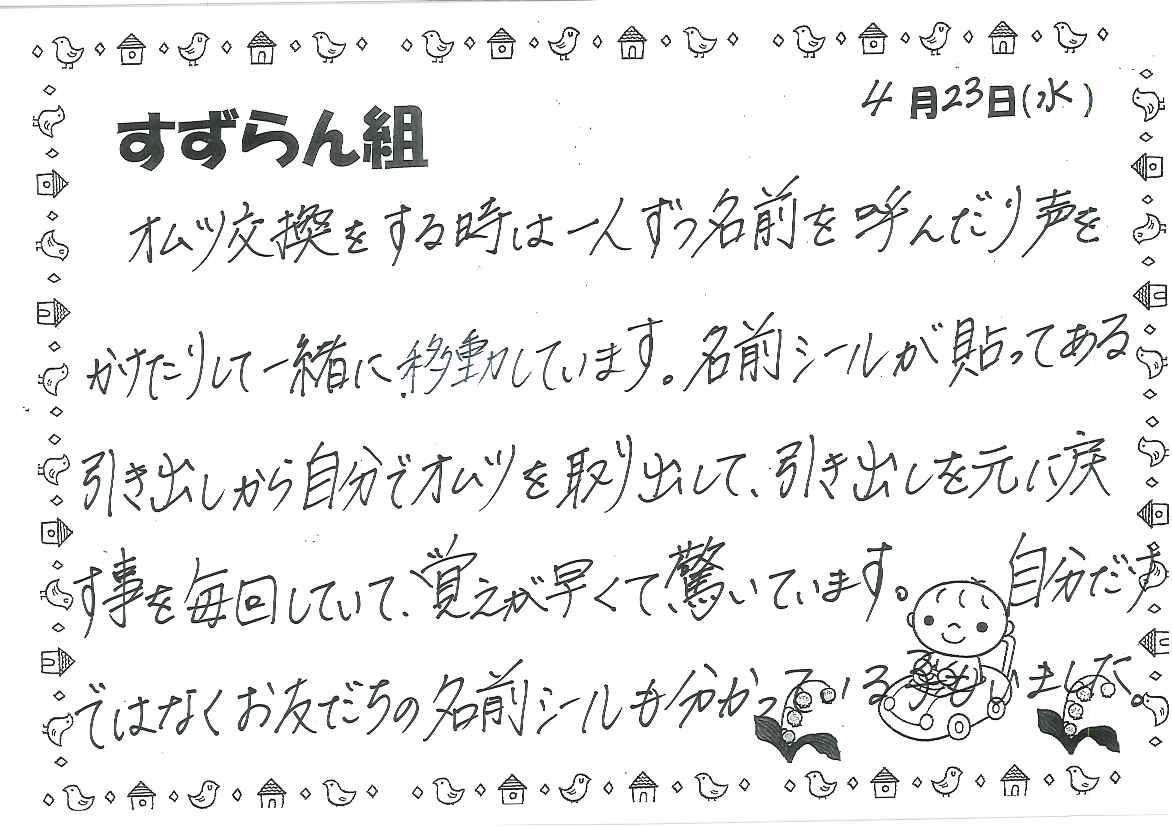 4月23日(水)
すずらん組
オムツ交換をする時は一人ずつ名前を呼んだり声を
かけたりして一緒に移動しています。名前シールが貼ってある
引き出しから自分でオムツを取り出して、引き出しを元に戻
す事を毎回していて、覚えが早くて驚いています。自分だけ
ではなくお友だちの名前シールも分かっている子もいました。